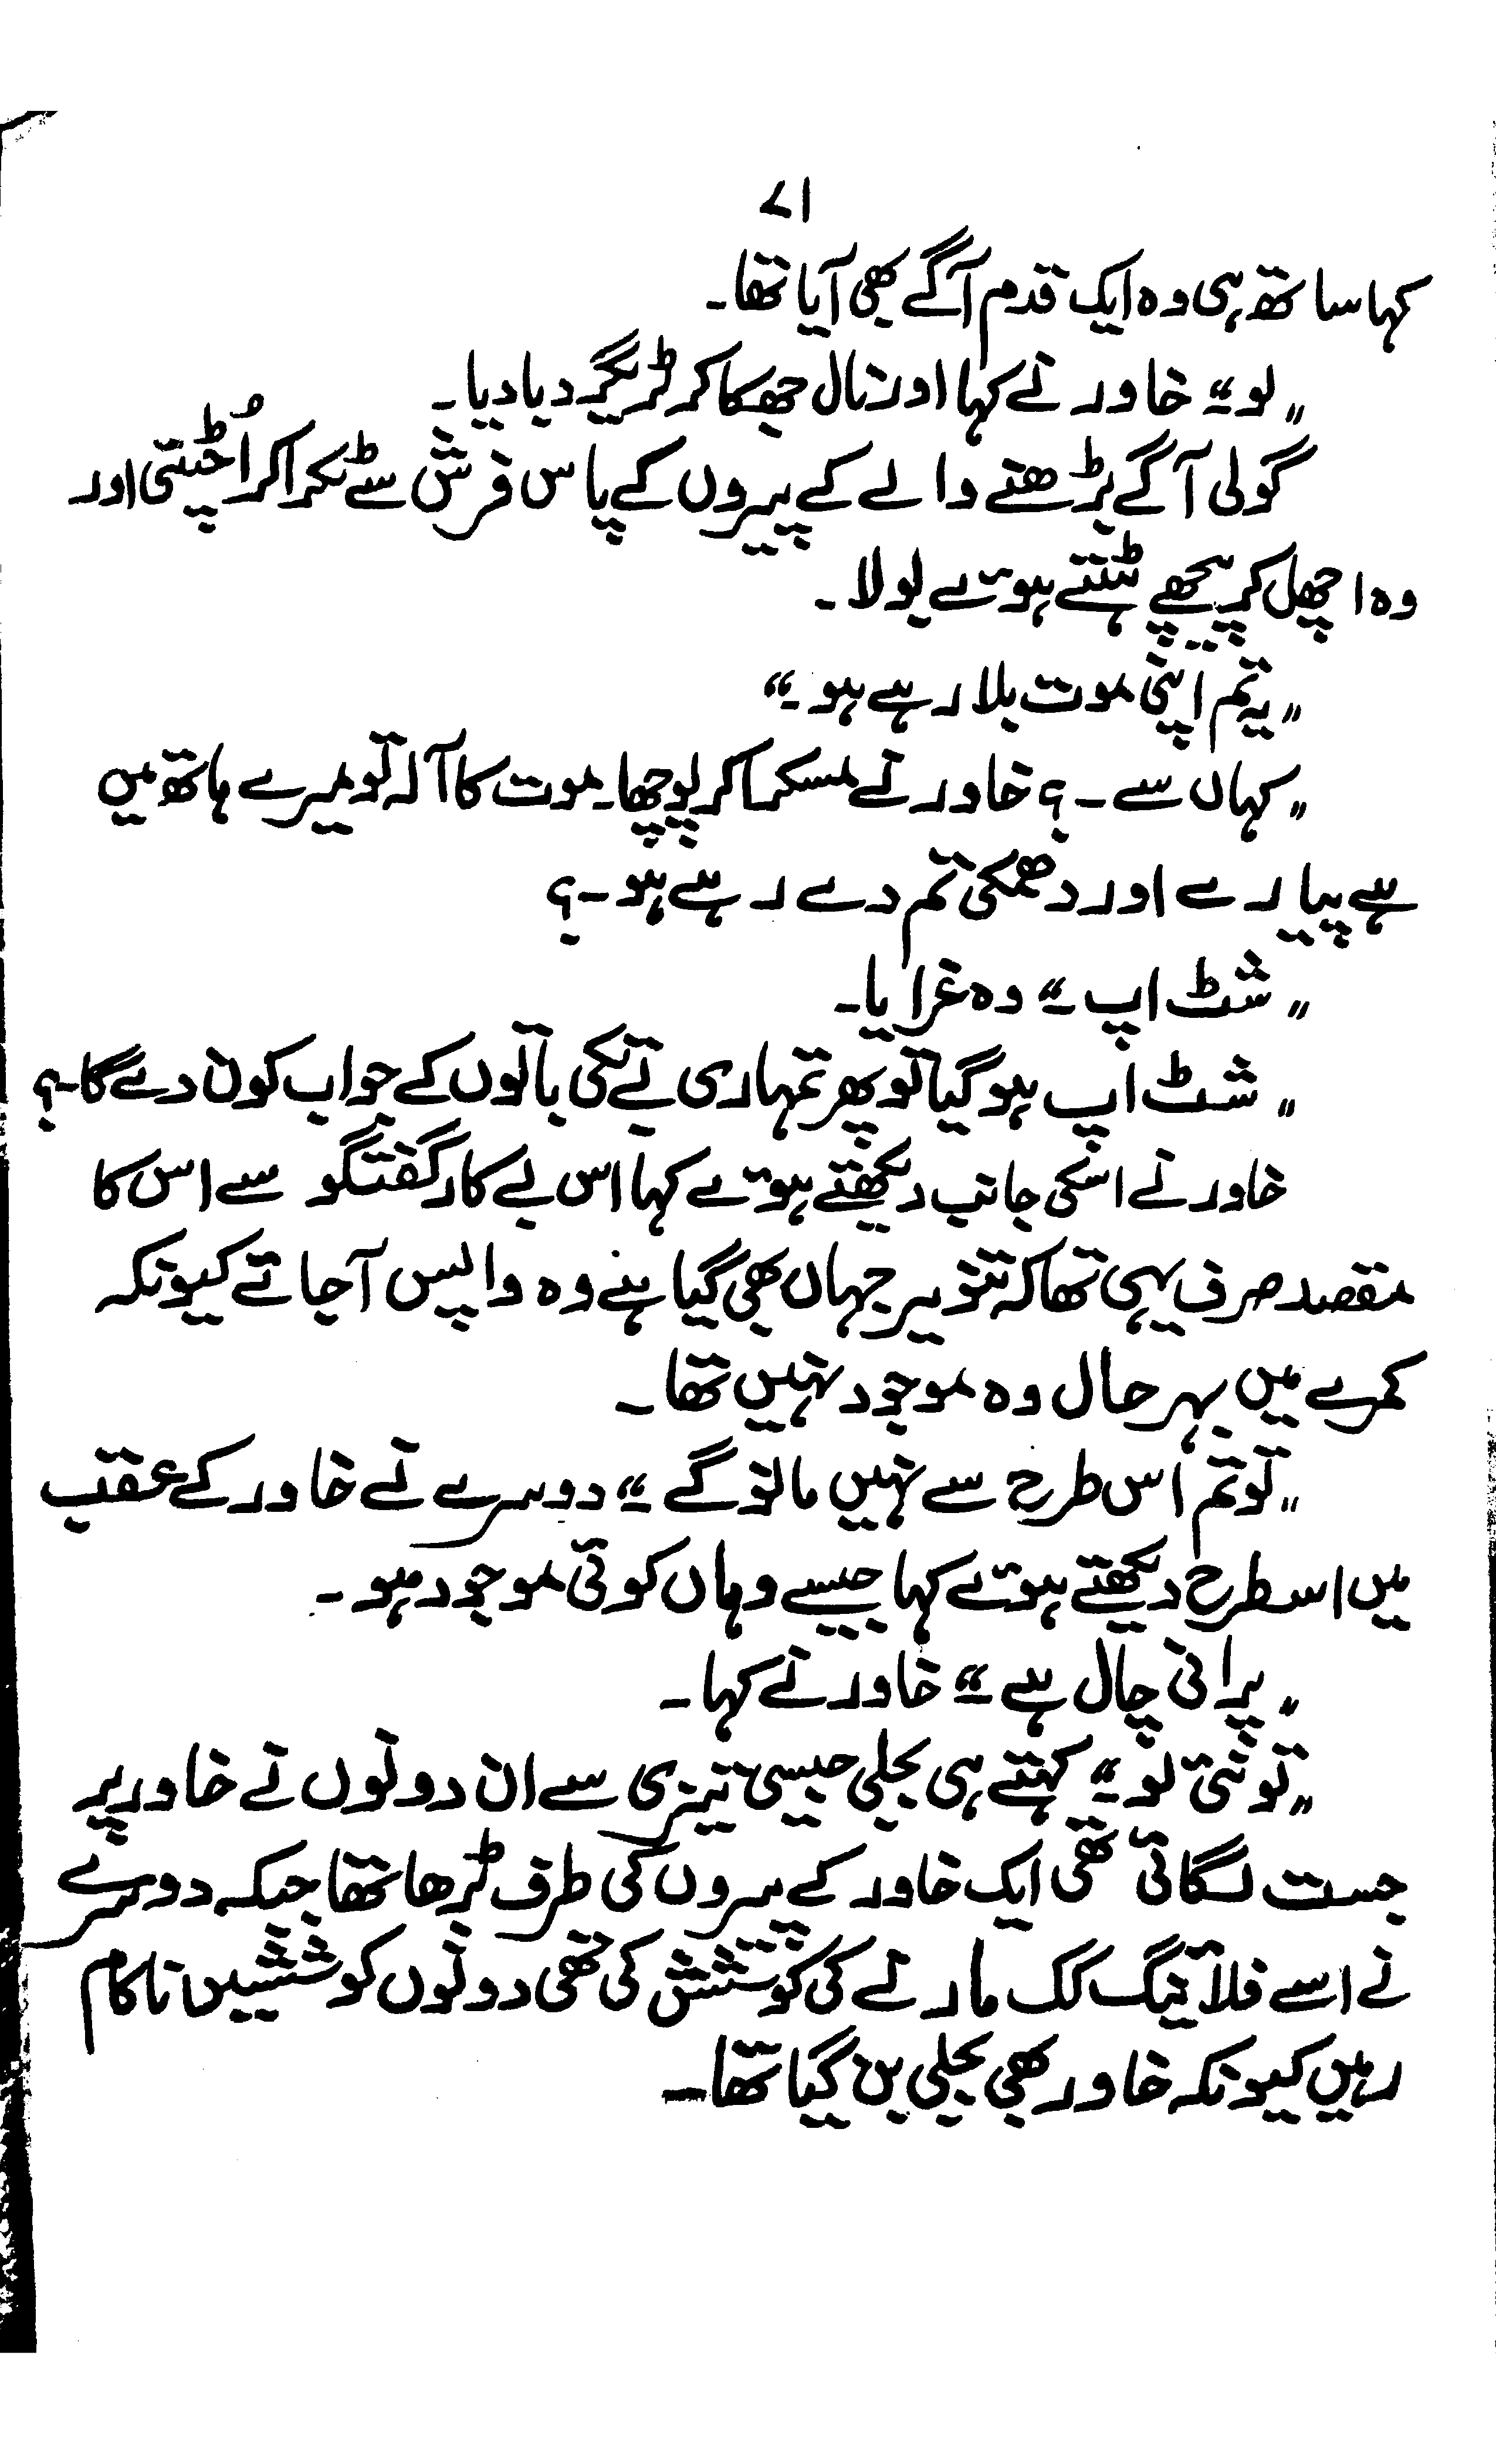 ۷۱
کہا ساتھ ہی وہ ایک قدم آگے بھی آیا تھا۔
"لو۔" خاور نے کہا اور نال جھکا کر ٹریگر دبا دیا۔
گولی آگے بڑھنے والے کے پیروں کے پاس فرش سے ٹکرا کر اُچٹتی اور
وہ اچھل کر پیچھے ہٹتے ہوئے بولا۔
"یہ تم اپنی موت بلا رہے ہو۔"
"کہاں سے۔؟ خاور نے مسکرا کر پوچھا۔ موت کا آلہ تو میرے ہاتھ میں
ہے پیارے اور دھمکی تم دے رہے ہو۔؟
"شٹ اپ۔" وہ غرایا۔
"شٹ اپ ہو گیا تو پھر تمہاری بے تکی باتوں کے جواب کون دے گا۔؟
خاور نے اسکی جانب دیکھتے ہوئے کہا اس بے کار گفتگو سے اس کا
مقصد صرف یہی تھا کہ تنویر جہاں بھی گیا ہے وہ واپس آ جائے کیونکہ
کمرے میں بہر حال وہ موجود نہیں تھا۔
"تو تم اس طرح سے نہیں مانو گے۔" دوسرے نے خاور کے عقب
میں اسطرح دیکھتے ہوئے کہا جیسے وہاں کوئی موجود ہو۔
"پرانی چال ہے۔" خاور نے کہا۔
"تو نئی لو۔" کہتے ہی بجلی جیسی تیزی سے ان دونوں نے خاور پر
جست لگائی تھی ایک خاور کے پیروں کی طرف بڑھا تھا جبکہ دوسرے
نے اسے فلائینگ کک مارنے کی کوشش کی تھی دونوں کوششیں ناکام
رہیں کیونکہ خاور بھی بجلی بن گیا تھا۔